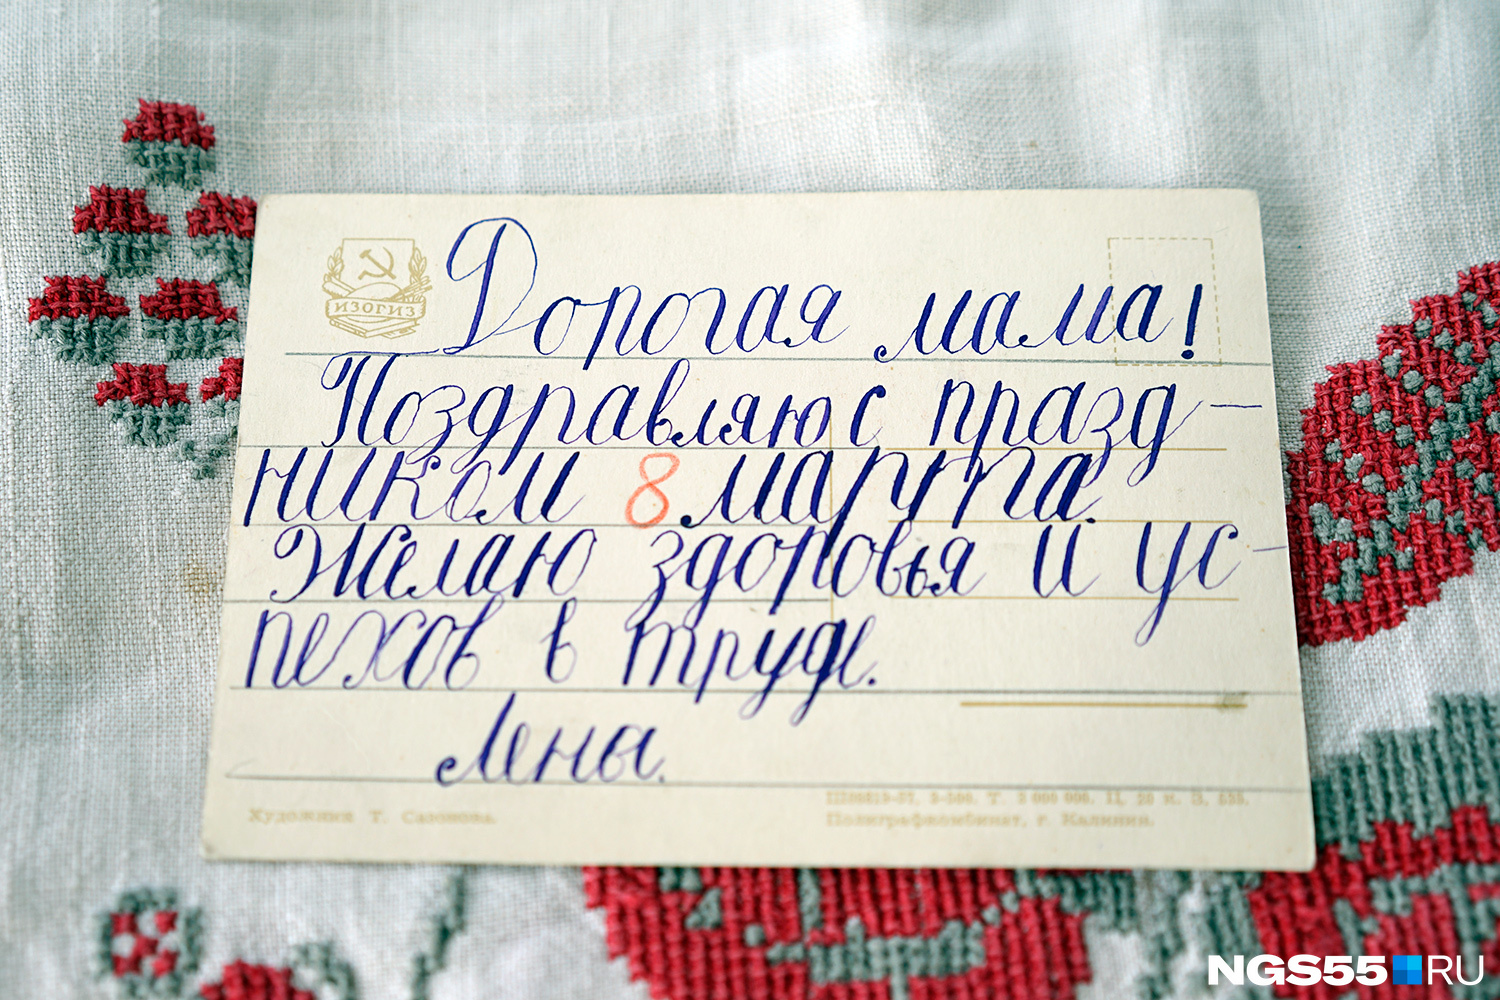 ИЗОГИЗ
Дорогая мама!
Поздравляю с празд-
ником 8 марта.
Желаю здоровья и ус-
пехов в труде.
Лена.
Художник Т. Сазонова.
Полиграфкомбинат, г. Калинин.
NGS55.RU